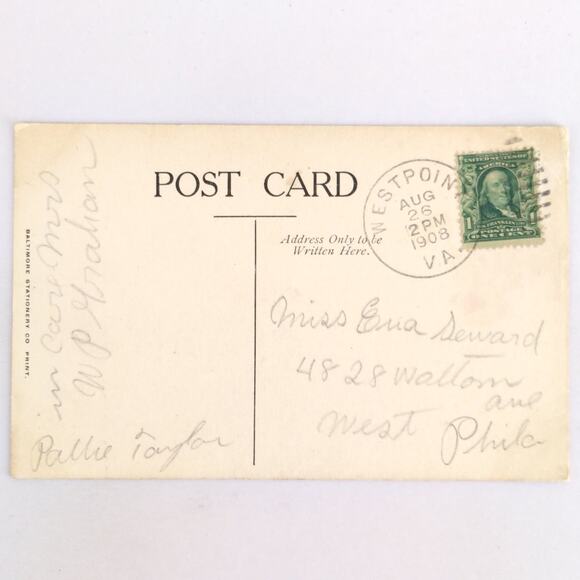 POST CARD
Address Only to be
Written Here.
WEST POINT
AUG
26
12PM
1908
VA.
UNITED STATES OF
AMERICA
1
POSTAGE
ONE CENT
Miss Eva Seward
4828 Waltom
ave
West Phila
in care Mrs
W P Graham
Pallie Taylor
BALTIMORE STATIONERY CO. PRINT.